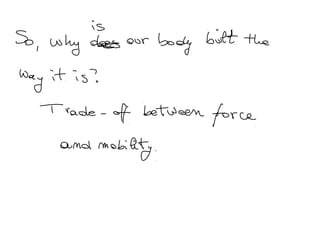 So, why is our body built the
way it is?
Trade-of between force
and mobility.